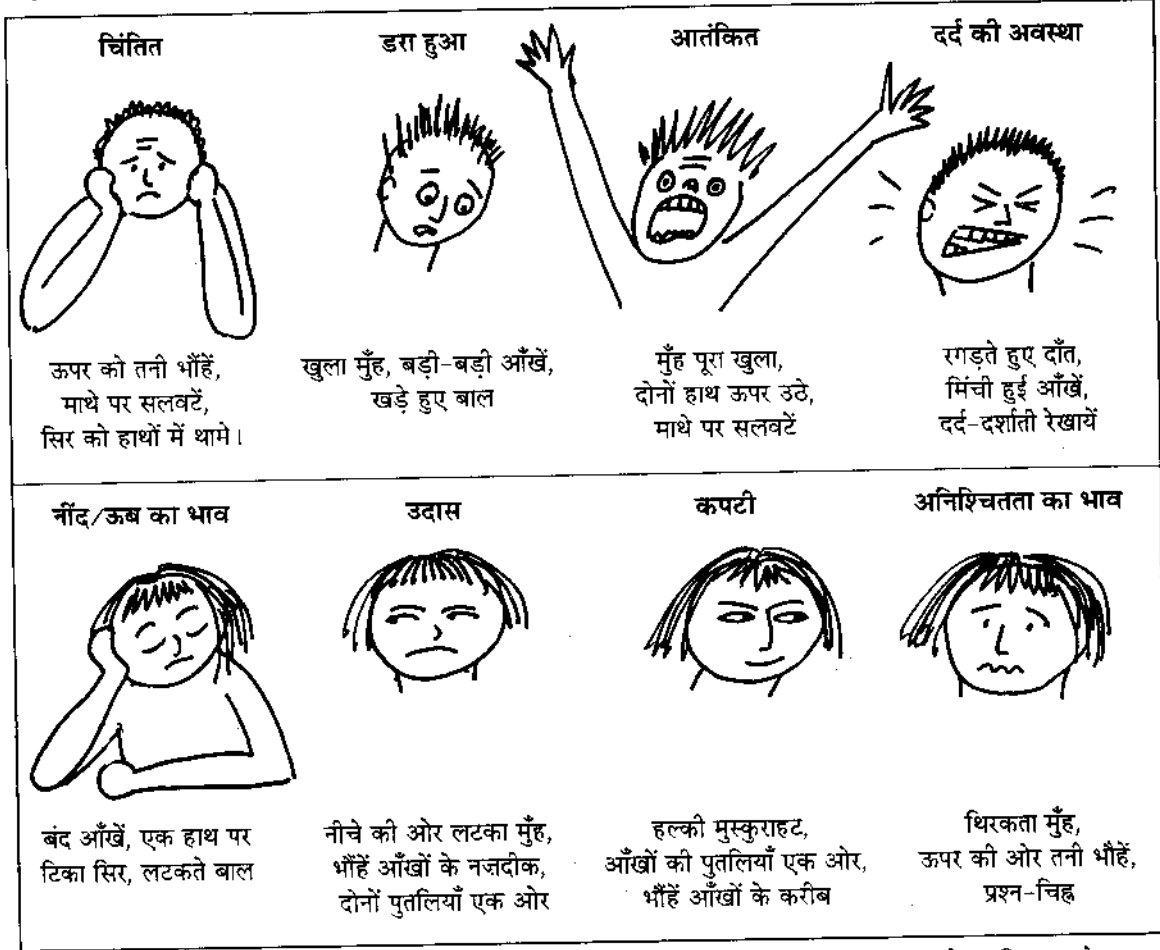 चिंतित
ऊपर को तनी भौंहें,
माथे पर सलवटें,
सिर को हाथों में थामे।
डरा हुआ
खुला मुँह, बड़ी-बड़ी आँखें,
खड़े हुए बाल
आतंकित
मुँह पूरा खुला,
दोनों हाथ ऊपर उठे,
माथे पर सलवटें
दर्द की अवस्था
रगड़ते हुए दाँत,
मिंची हुई आँखें,
दर्द-दर्शाती रेखायें
नींद/ऊब का भाव
बंद आँखें, एक हाथ पर
टिका सिर, लटकते बाल
उदास
नीचे की ओर लटका मुँह,
भौंहें आँखों के नज़दीक,
दोनों पुतलियाँ एक ओर
कपटी
हल्की मुस्कुराहट,
आँखों की पुतलियाँ एक ओर,
भौंहें आँखों के करीब
अनिश्चितता का भाव
थिरकता मुँह,
ऊपर की ओर तनी भौहें,
प्रश्न-चिह्न